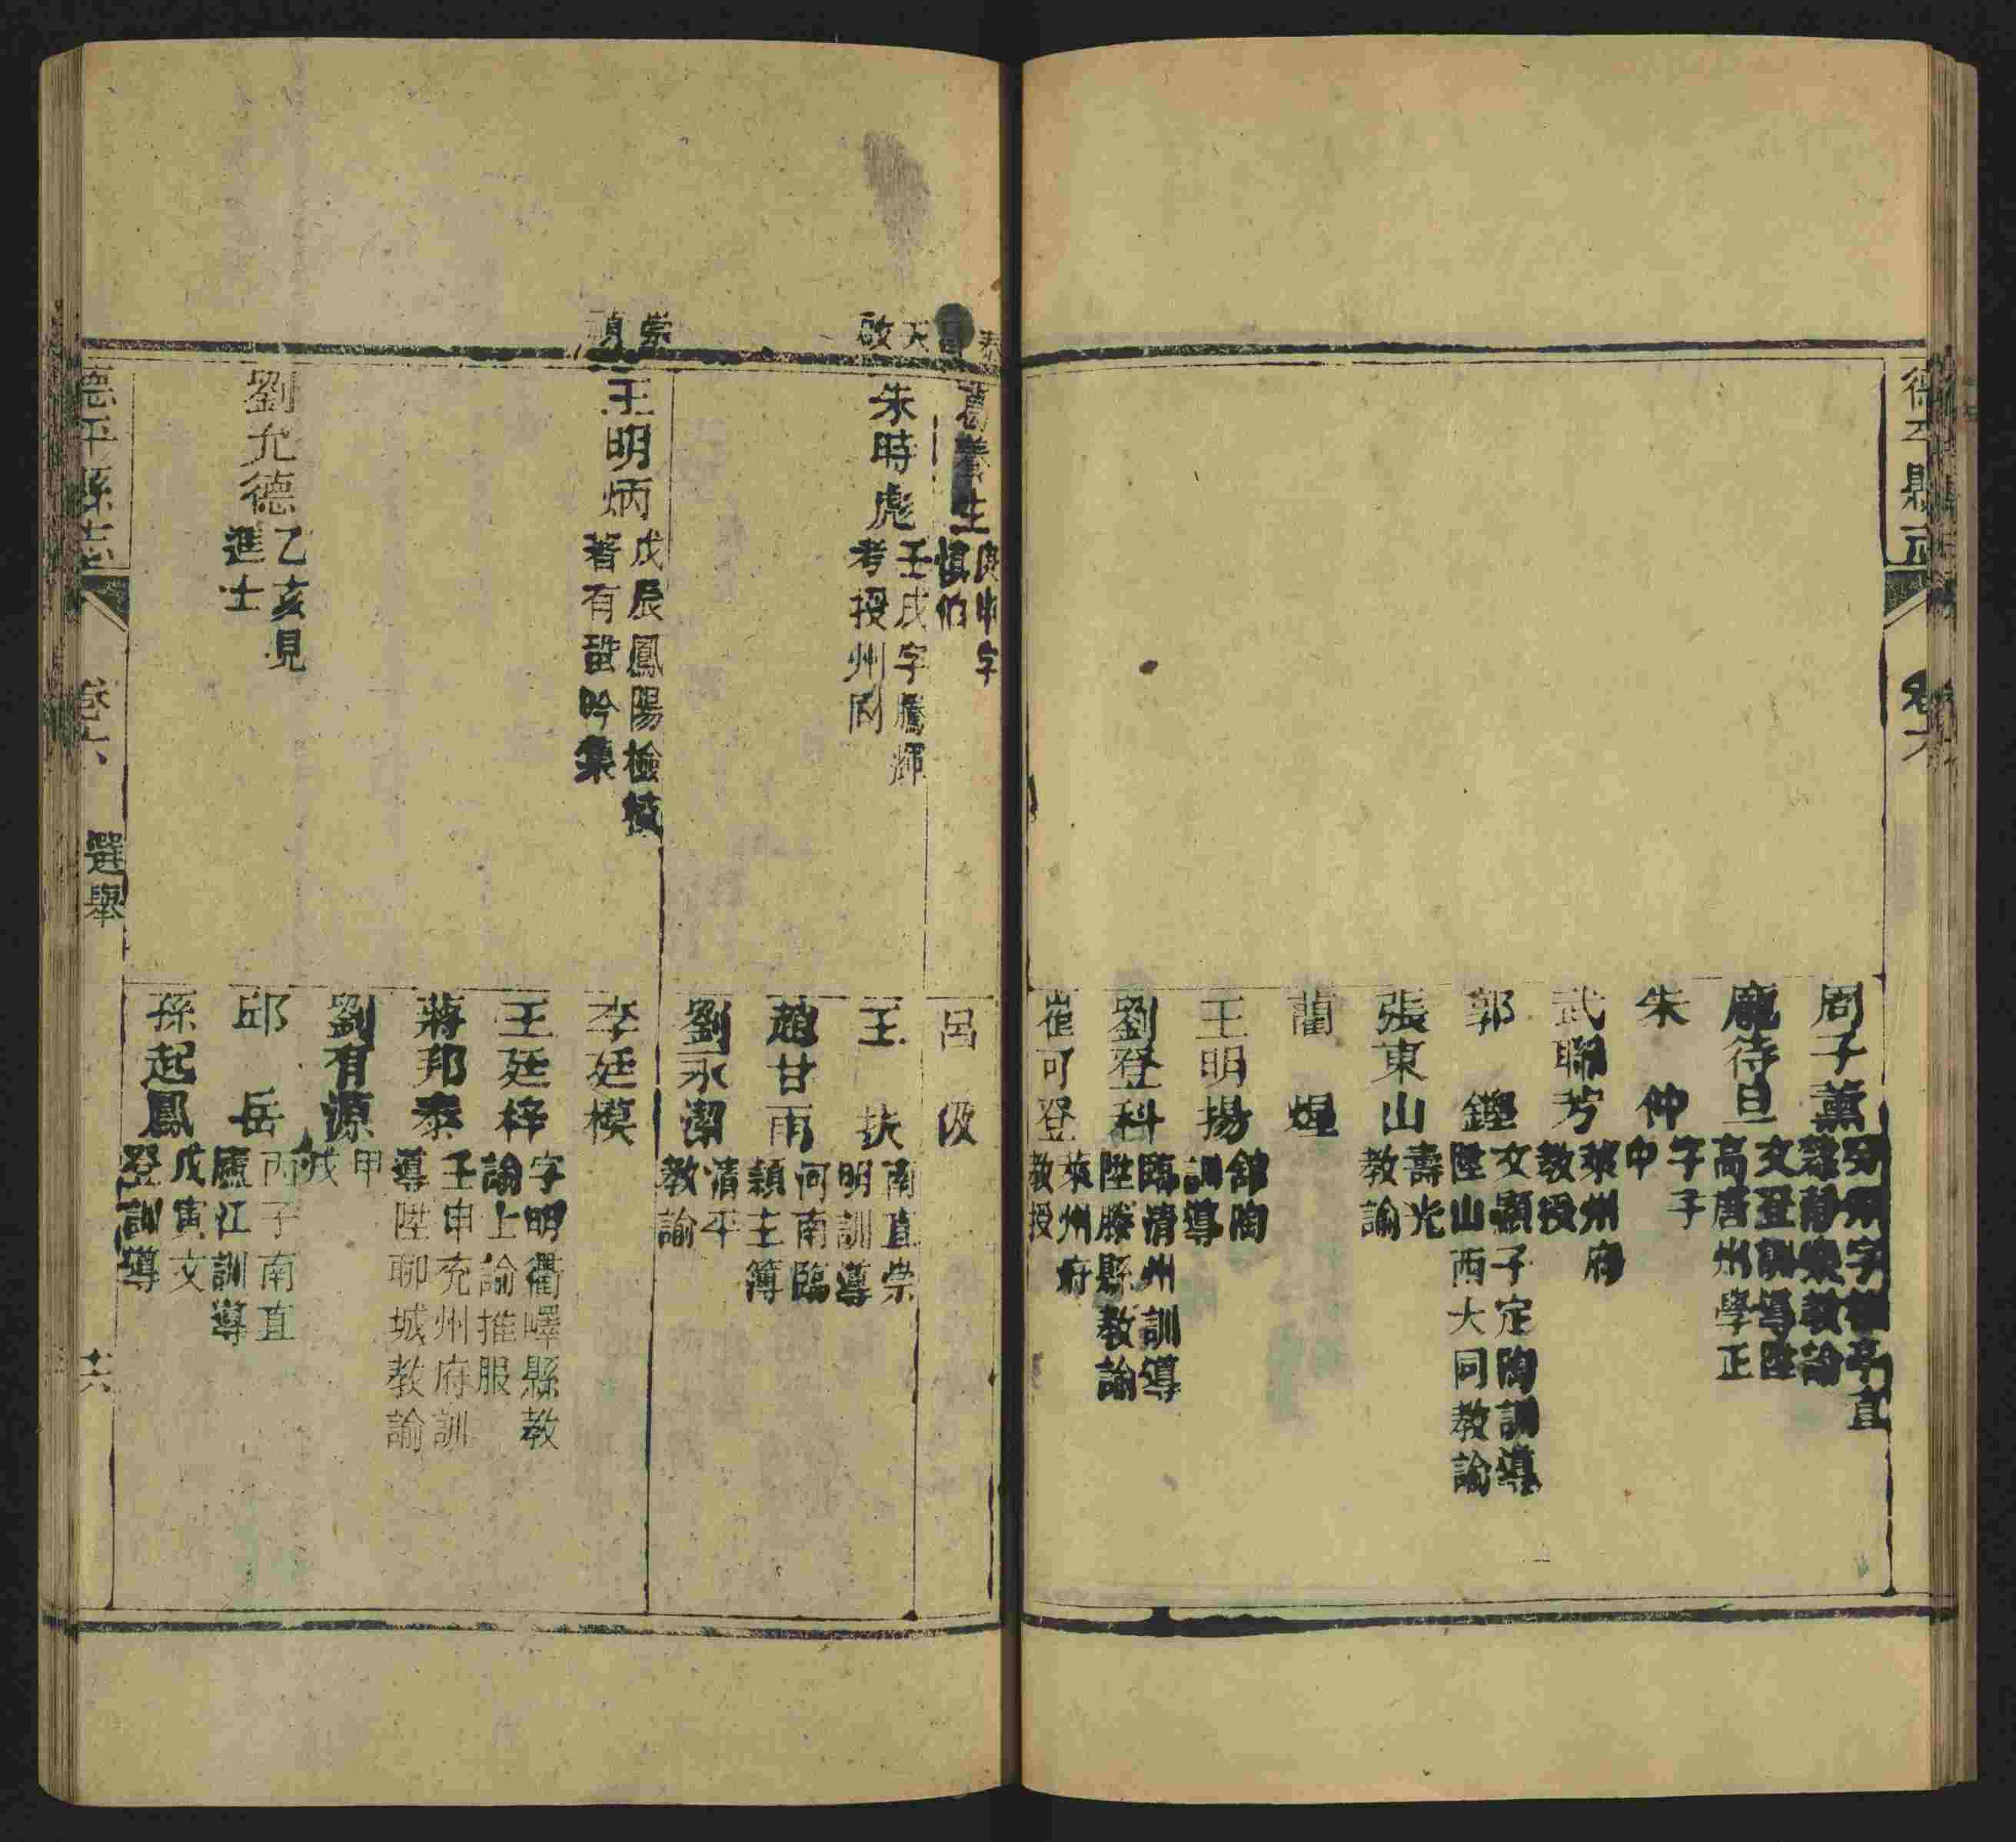 德平縣志
卷六
周子薰
字
直
教諭
龐待旦
文登訓導陞
高唐州學正
朱 仲
字子
中
武聯芳
萊州府
教授
郭 鏗
文顯子定陶訓導
陞山西大同教諭
張東山
壽光
教諭
藺 煋
王明揚
舘陶
訓導
劉登科
臨清州訓導
陞滕縣教諭
崔可登
萊州府
教授
泰昌
葛養生
庚申字
慎伯
呂 伋
天啟
朱時彪
壬戌字騰輝
考授州同
王 扶
南直崇
明訓導
趙甘雨
河南臨
潁主簿
劉永潔
清平
教諭
崇禎
王明炳
戊辰鳳陽檢校
著有蛩吟集
李廷模
王廷梓
字明衢嶧縣教
諭上諭推服
蔣邦泰
壬申兖州府訓
導陞聊城教諭
劉有源
甲
戌
劉允德
乙亥見
進士
邱 岳
丙子南直
廬江訓導
孫起鳳
戊寅文
登訓導
德平縣志
卷六
選舉
十六